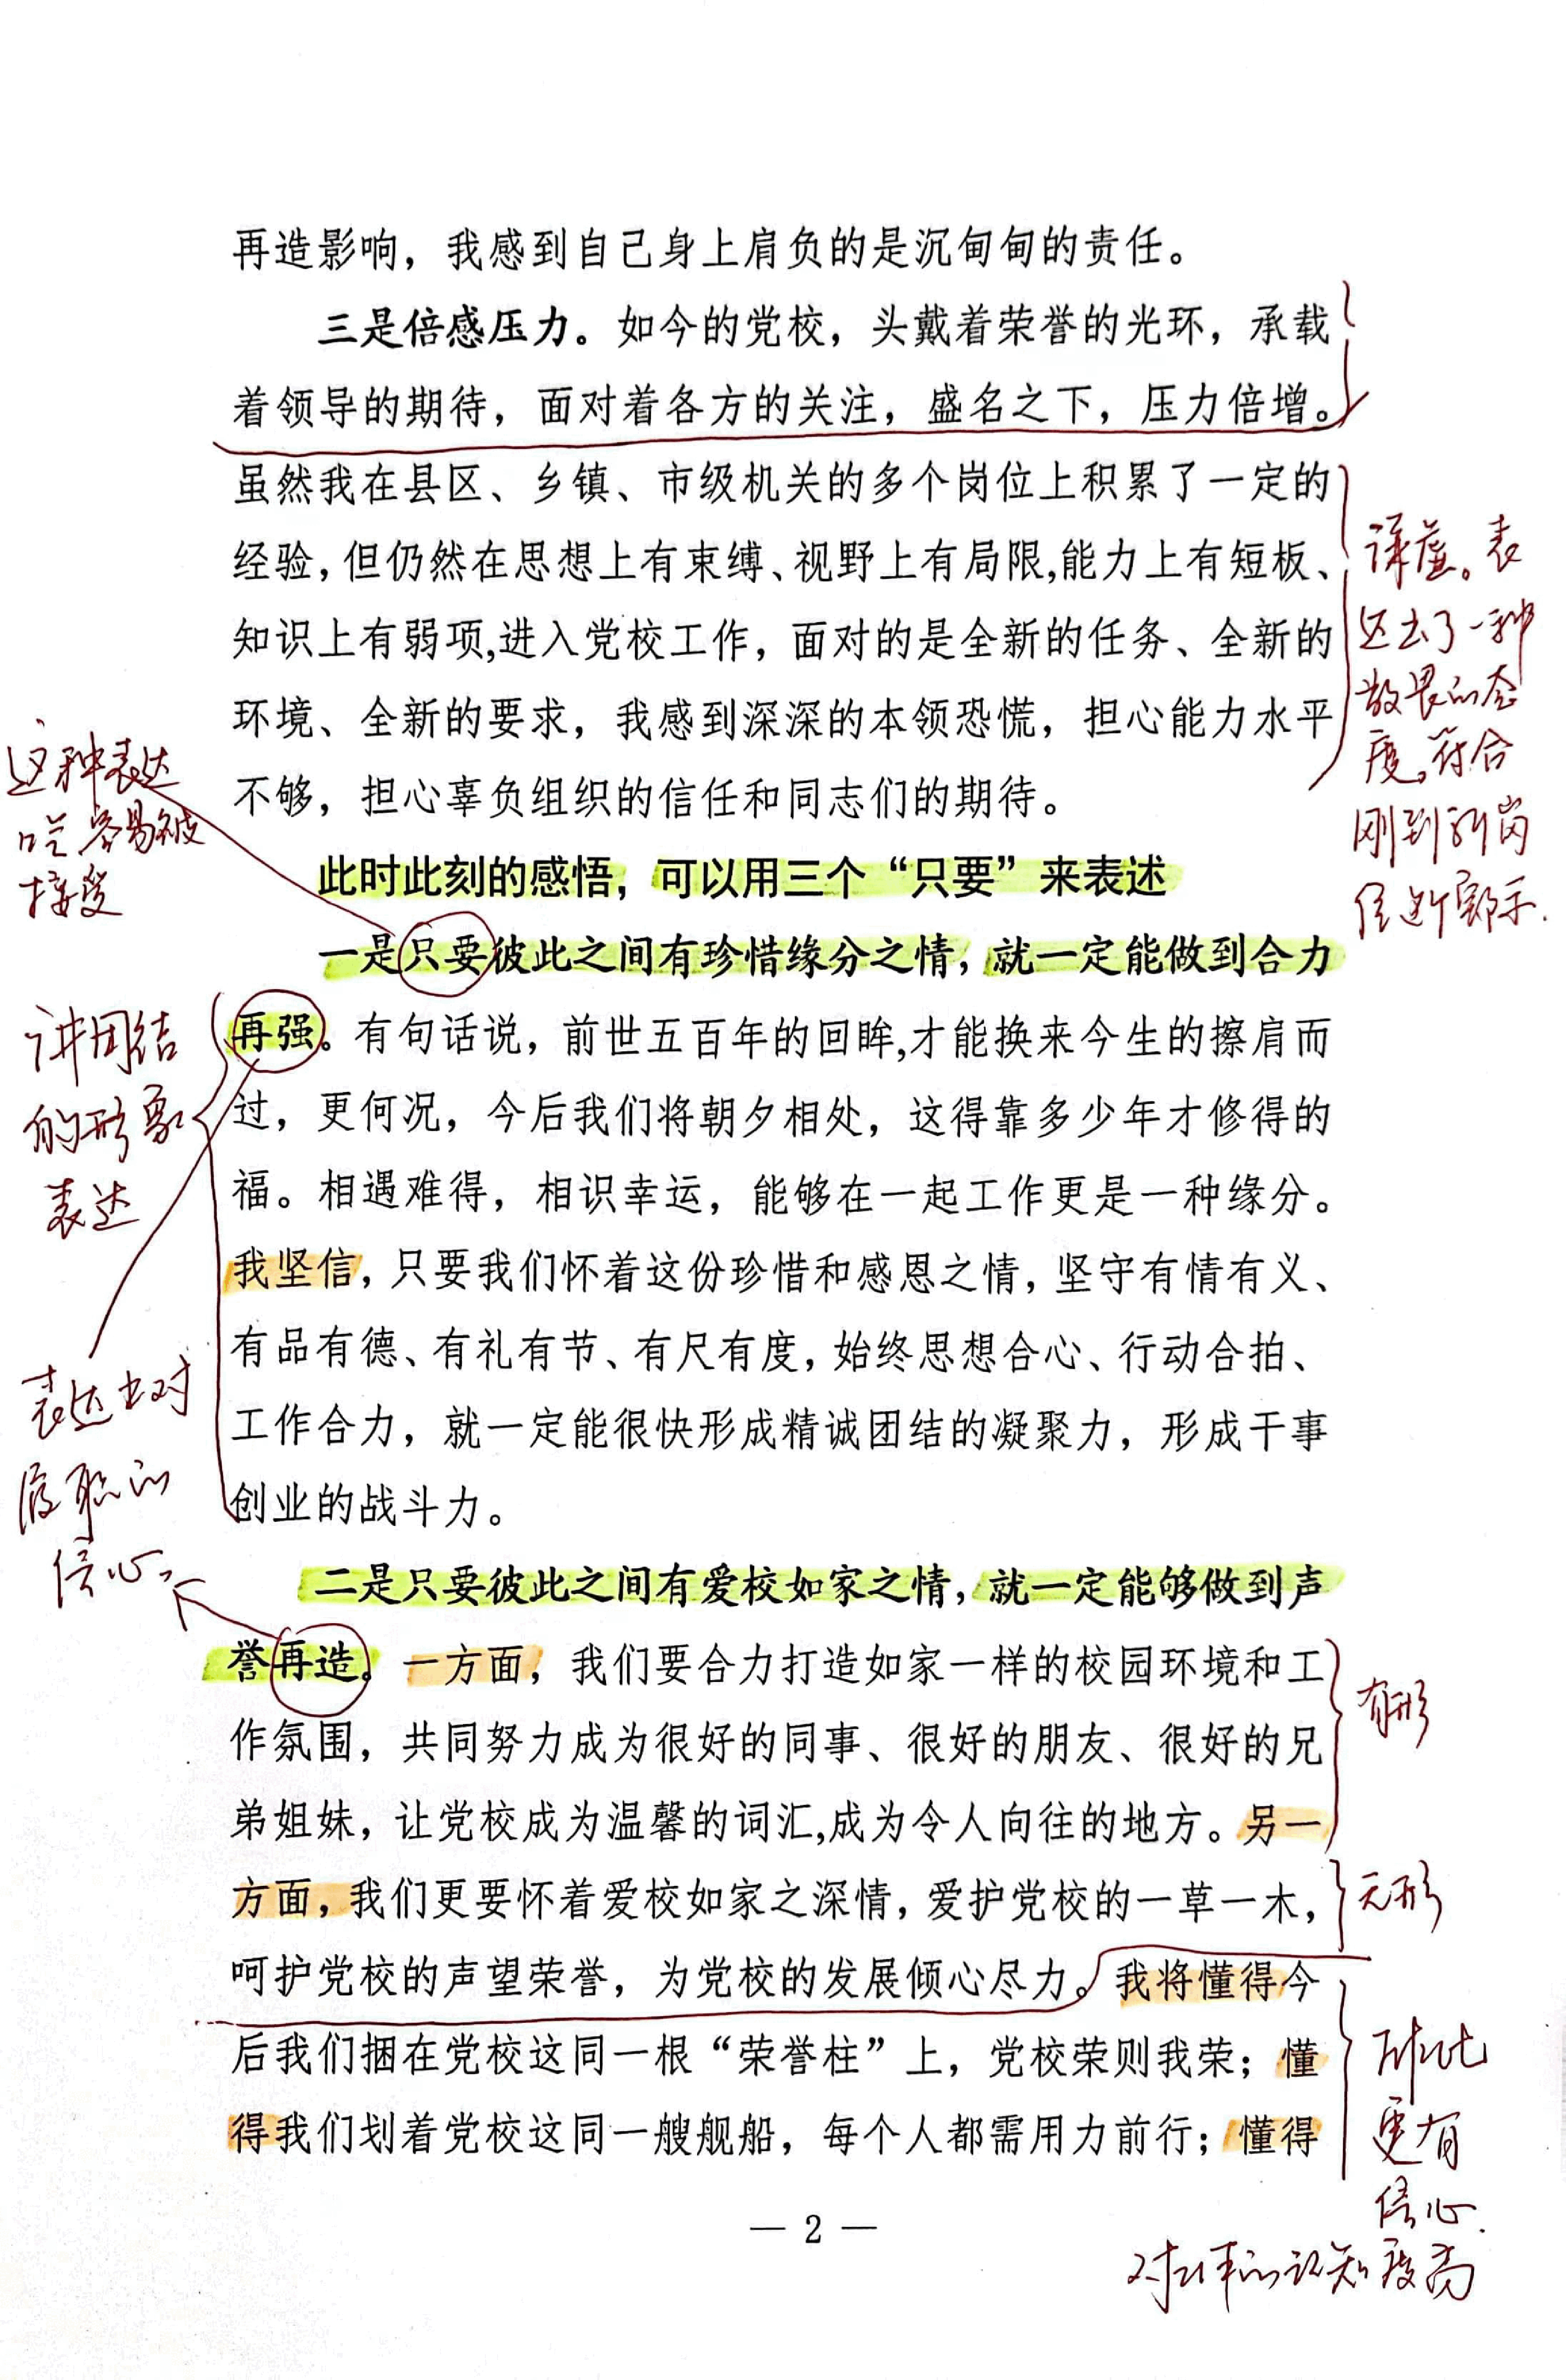 再造影响，我感到自己身上肩负的是沉甸甸的责任。
三是倍感压力。如今的党校，头戴着荣誉的光环，承载
着领导的期待，面对着各方的关注，盛名之下，压力倍增。
虽然我在县区、乡镇、市级机关的多个岗位上积累了一定的
经验,但仍然在思想上有束缚、视野上有局限,能力上有短板、
知识上有弱项,进入党校工作，面对的是全新的任务、全新的
环境、全新的要求，我感到深深的本领恐慌，担心能力水平
不够，担心辜负组织的信任和同志们的期待。
谦虚。表
达出了一种
敬畏的态
度。符合
刚到新岗
位这个
此时此刻的感悟，可以用三个“只要”来表述
这种表达
容易被
接受
一是只要彼此之间有珍惜缘分之情，就一定能做到合力
再强。有句话说，前世五百年的回眸,才能换来今生的擦肩而
过，更何况，今后我们将朝夕相处，这得靠多少年才修得的
福。相遇难得，相识幸运，能够在一起工作更是一种缘分。
我坚信，只要我们怀着这份珍惜和感恩之情，坚守有情有义、
有品有德、有礼有节、有尺有度，始终思想合心、行动合拍、
工作合力，就一定能很快形成精诚团结的凝聚力，形成干事
创业的战斗力。
讲团结
的形象
表达
表达出对
履职的
信心
二是只要彼此之间有爱校如家之情，就一定能够做到声
誉再造。一方面，我们要合力打造如家一样的校园环境和工
作氛围，共同努力成为很好的同事、很好的朋友、很好的兄
弟姐妹，让党校成为温馨的词汇,成为令人向往的地方。另一
方面，我们更要怀着爱校如家之深情，爱护党校的一草一木，
呵护党校的声望荣誉，为党校的发展倾心尽力。我将懂得今
后我们捆在党校这同一根“荣誉柱”上，党校荣则我荣；懂
得我们划着党校这同一艘舰船，每个人都需用力前行；懂得
有形
无形
排比
更有
信心.
对工作的认知度高
— 2 —